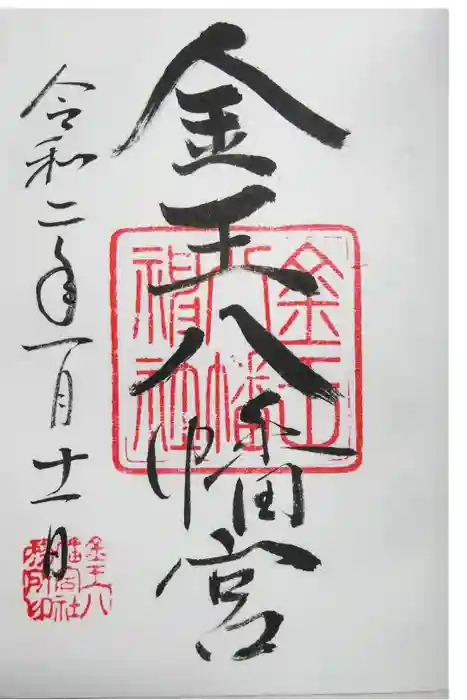 金王八幡宮
金王
八幡
神社
令和二年一月十一日
金王八
幡宮社
務所印